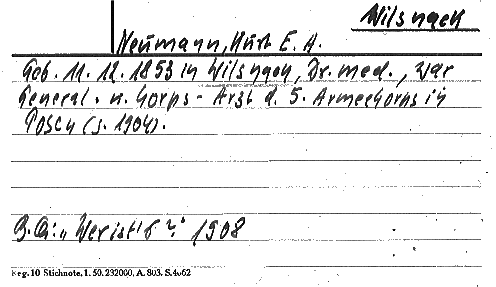 Wilsnack
Neumann, Kurt E. A.
Geb. 11. 12. 1853 in Wilsnack, Dr. med., war
General- u. Corps-Arzt d. 5. Armeecorps in
Posen (s. 1904).
B. Qu.: „Wer ist's?" 1908
Reg. 10 Stichnote. 1. 50. 232000. A. 803. S. 4062